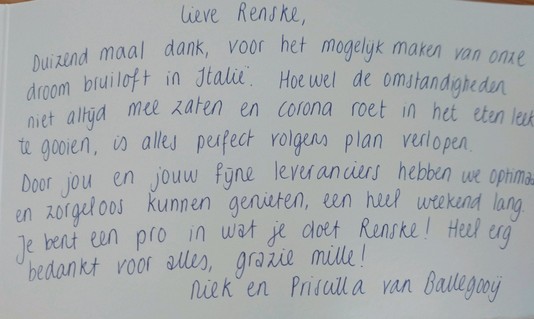 Lieve Renske,
Duizend maal dank, voor het mogelijk maken van onze
droom bruiloft in Italië. Hoewel de omstandigheden
niet altijd mee zaten en corona roet in het eten leek
te gooien, is alles perfect volgens plan verlopen.
Door jou en jouw fijne leveranciers hebben we optimaal
en zorgeloos kunnen genieten, een heel weekend lang.
Je bent een pro in wat je doet Renske! Heel erg
bedankt voor alles, grazie mille!
Niek en Priscilla van Ballegooij